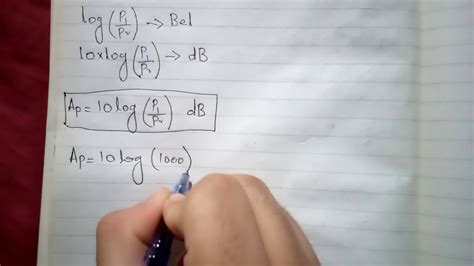 log(P₁/Pᵥ) → Bel
10xlog(P₁/P₂) → dB
Ap = 10 log(P₁/Pᵥ) dB
Ap = 10 log (1000)